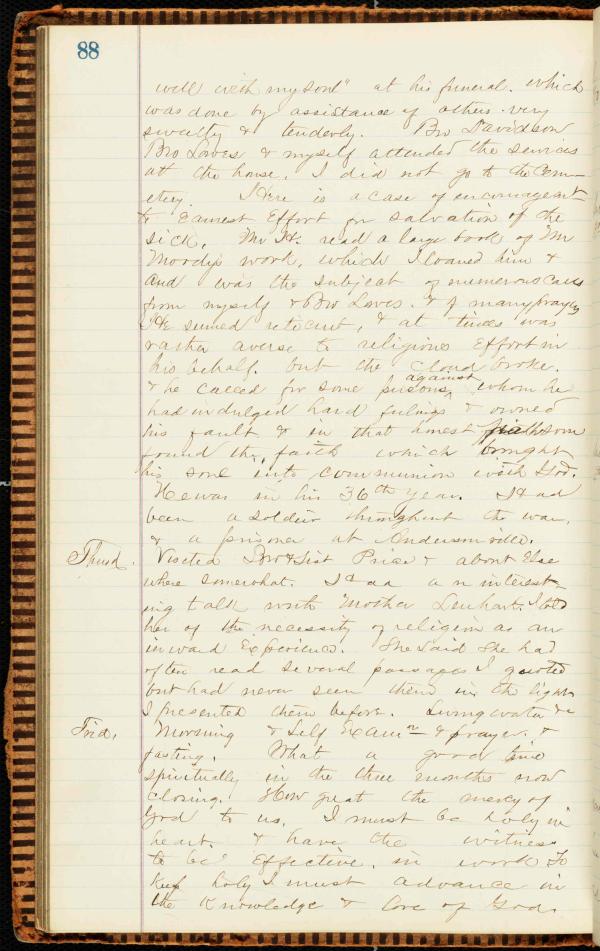 88
well with my soul" at his funeral. which
was done by assistance of others very
sweetly & tenderly. Bro Davidson
Bro Loves & myself attended the services
at the house. I did not go to the Cem-
etery. Here is a case of encouragent
to Earnest Effort for salvation of the
sick. Mr H. read a large book of Mr
Moodys work, which I loaned him &
and was the subject of numerous calls
from myself & Bro Loves. & of many prayers
He seemed reticent, & at times was
rather averse to religious Effort in
his behalf. but the cloud broke.
& he called for some persons against whom he
had indulged hard feelings & owned
his fault & in that honest
found the faith which brought
his soul into communion with God.
He was in his 36th year. Had
been a soldier throughout the war,
& a prisoner at Andersonville.
Thusd. Visited Bro & Sist Price & about Else
where somewhat. Had an interest-
ing talk with Mother Lenhart. I told
her of the necessity of religion as an
inward Experience. She said she had
often read several passages I quoted
but had never seen them in the light
I presented them before. Living water &c
Frid. Morning & Self Examn & prayer. &
fasting. What a good time
spiritually in the three months now
closing. How great the mercy of
God to us. I must be holy in
heart. & have the witness
to be Effective. in work To
Keep holy I must advance in
the Knowledge & love of God.